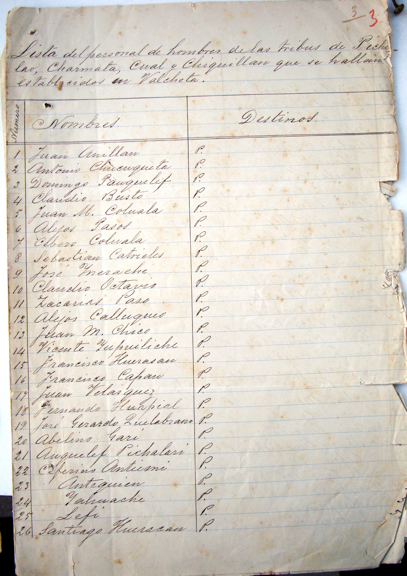 3 3
Lista del personal de hombres de las tribus de Piche-
lao, Charmata, Cual y Chiquillan que se hallan
establecidos en Valcheta.
Numero Nombres. Destinos.
1 Juan Anillan P.
2 Antonio P.
3 Domingo Panguelef P.
4 Claudio Busto P.
5 Juan M. Coluala P.
6 Alejos Pasos P.
7 Coluala P.
8 Sebastian Catrieles P.
9 José P.
10 Claudio Octavio P.
11 Zacarias Paso P.
12 Alejos Calluqueo P.
13 Juan M. Chico P.
14 Vicente P.
15 Francisco Huerasan P.
16 Francisco Capan P.
17 Juan Velasquez P.
18 Fernando P.
19 José Gerardo Quilabrano P.
20 Abelino Gari P.
21 Anguelef Pichalari P.
22 Ceferino P.
23 Antiquien P.
24 P.
25 Lefi P.
26 Santiago Huerasan P.